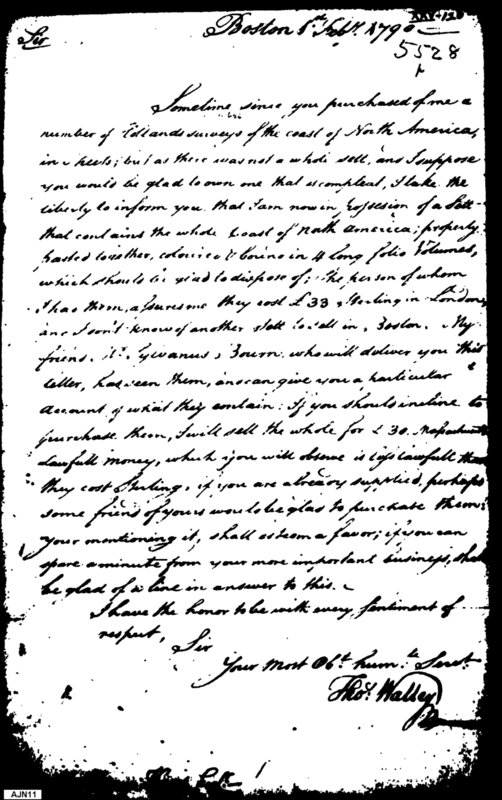 Boston 8th Feby. 1790
Sir
5528
Sometime since, you purchased of me a
number of Hollands surveys of the coast of North America,
in sheets; but as there was not a whole sett, and I suppose
you would be glad to own one that is compleat, I take the
liberty to inform you that I am now in possession of a Sett
that contains the whole Coast of North America; properly
pasted together, coloured & bound in 4 Long folio Volumes,
which should be glad to dispose of; the person of whom
I has them, assures me they cost £33 Sterling in London,
and I don't know of another sett to sell in Boston. My
friend Mr. Sylvanus Bourn, who will deliver you this
letter, has seen them, and can give you a particular
account of what they contain: If you should incline to
purchase them, I will sell the whole for £30. Massachusetts
Lawfull money, which you will observe is less lawfull than
they cost Sterling, if you are already supplied, perhaps
some friend of yours would be glad to purchase them:
your mentioning it, shall esteem a favor; if you can
spare a minute from your more important business, shall
be glad of a line in answer to this.
I have the honor to be with every Sentiment of
respect, Sir
Your Most Obt. humle. Servt.
Thos. Walley
AJN11